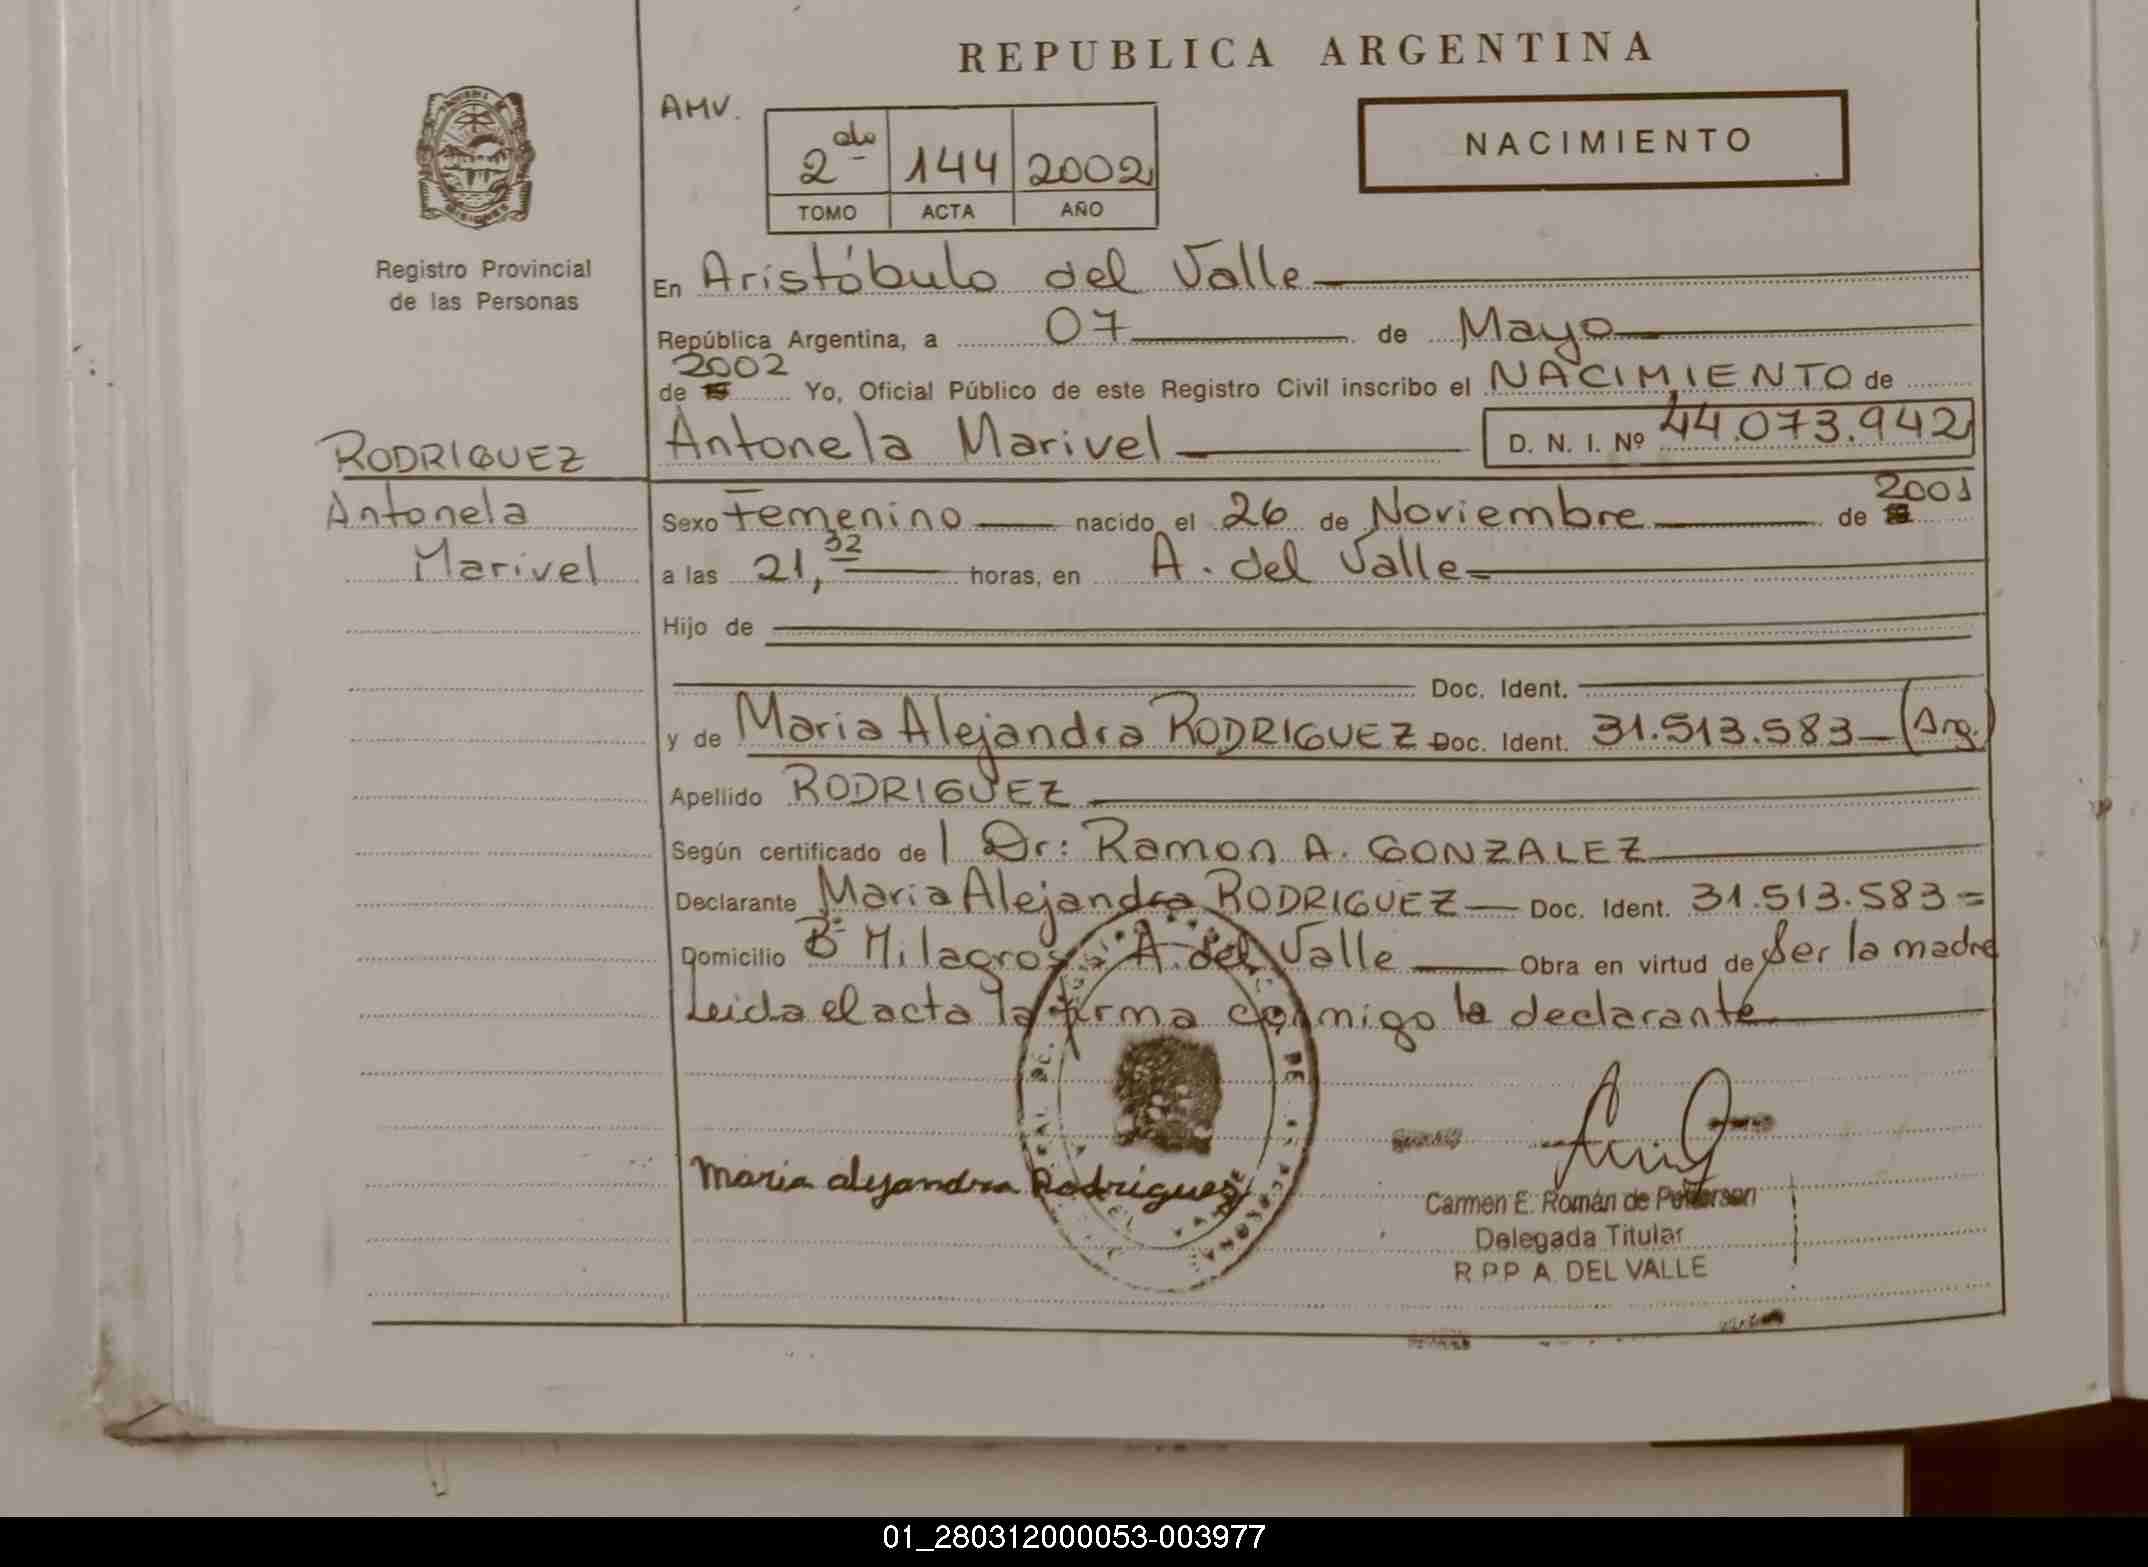 REPUBLICA ARGENTINA
AMV.
2do 144 2002
TOMO ACTA AÑO
NACIMIENTO
MISIONES
Registro Provincial
de las Personas
En Aristóbulo del Valle
República Argentina, a 07 de Mayo
2002
de 19 Yo, Oficial Público de este Registro Civil inscribo el NACIMIENTO de
Antonela Marivel D. N. I. Nº 44.073.942
RODRIGUEZ
Antonela
Marivel
Sexo Femenino nacido el 26 de Noviembre de 2001
a las 21,32 horas, en A. del Valle
Hijo de
Doc. Ident.
y de Maria Alejandra RODRIGUEZ Doc. Ident. 31.513.583 (Arg.)
Apellido RODRIGUEZ
Según certificado del Dr: Ramon A. GONZALEZ
Declarante Maria Alejandra RODRIGUEZ Doc. Ident. 31.513.583=
Domicilio Bº Milagros A. del Valle Obra en virtud de Ser la madre
Leida el acta la firma conmigo la declarante
Maria alejandra Rodriguez
Carmen E. Román de Petterson
Delegada Titular
R.P.P A. DEL VALLE
01_280312000053-003977